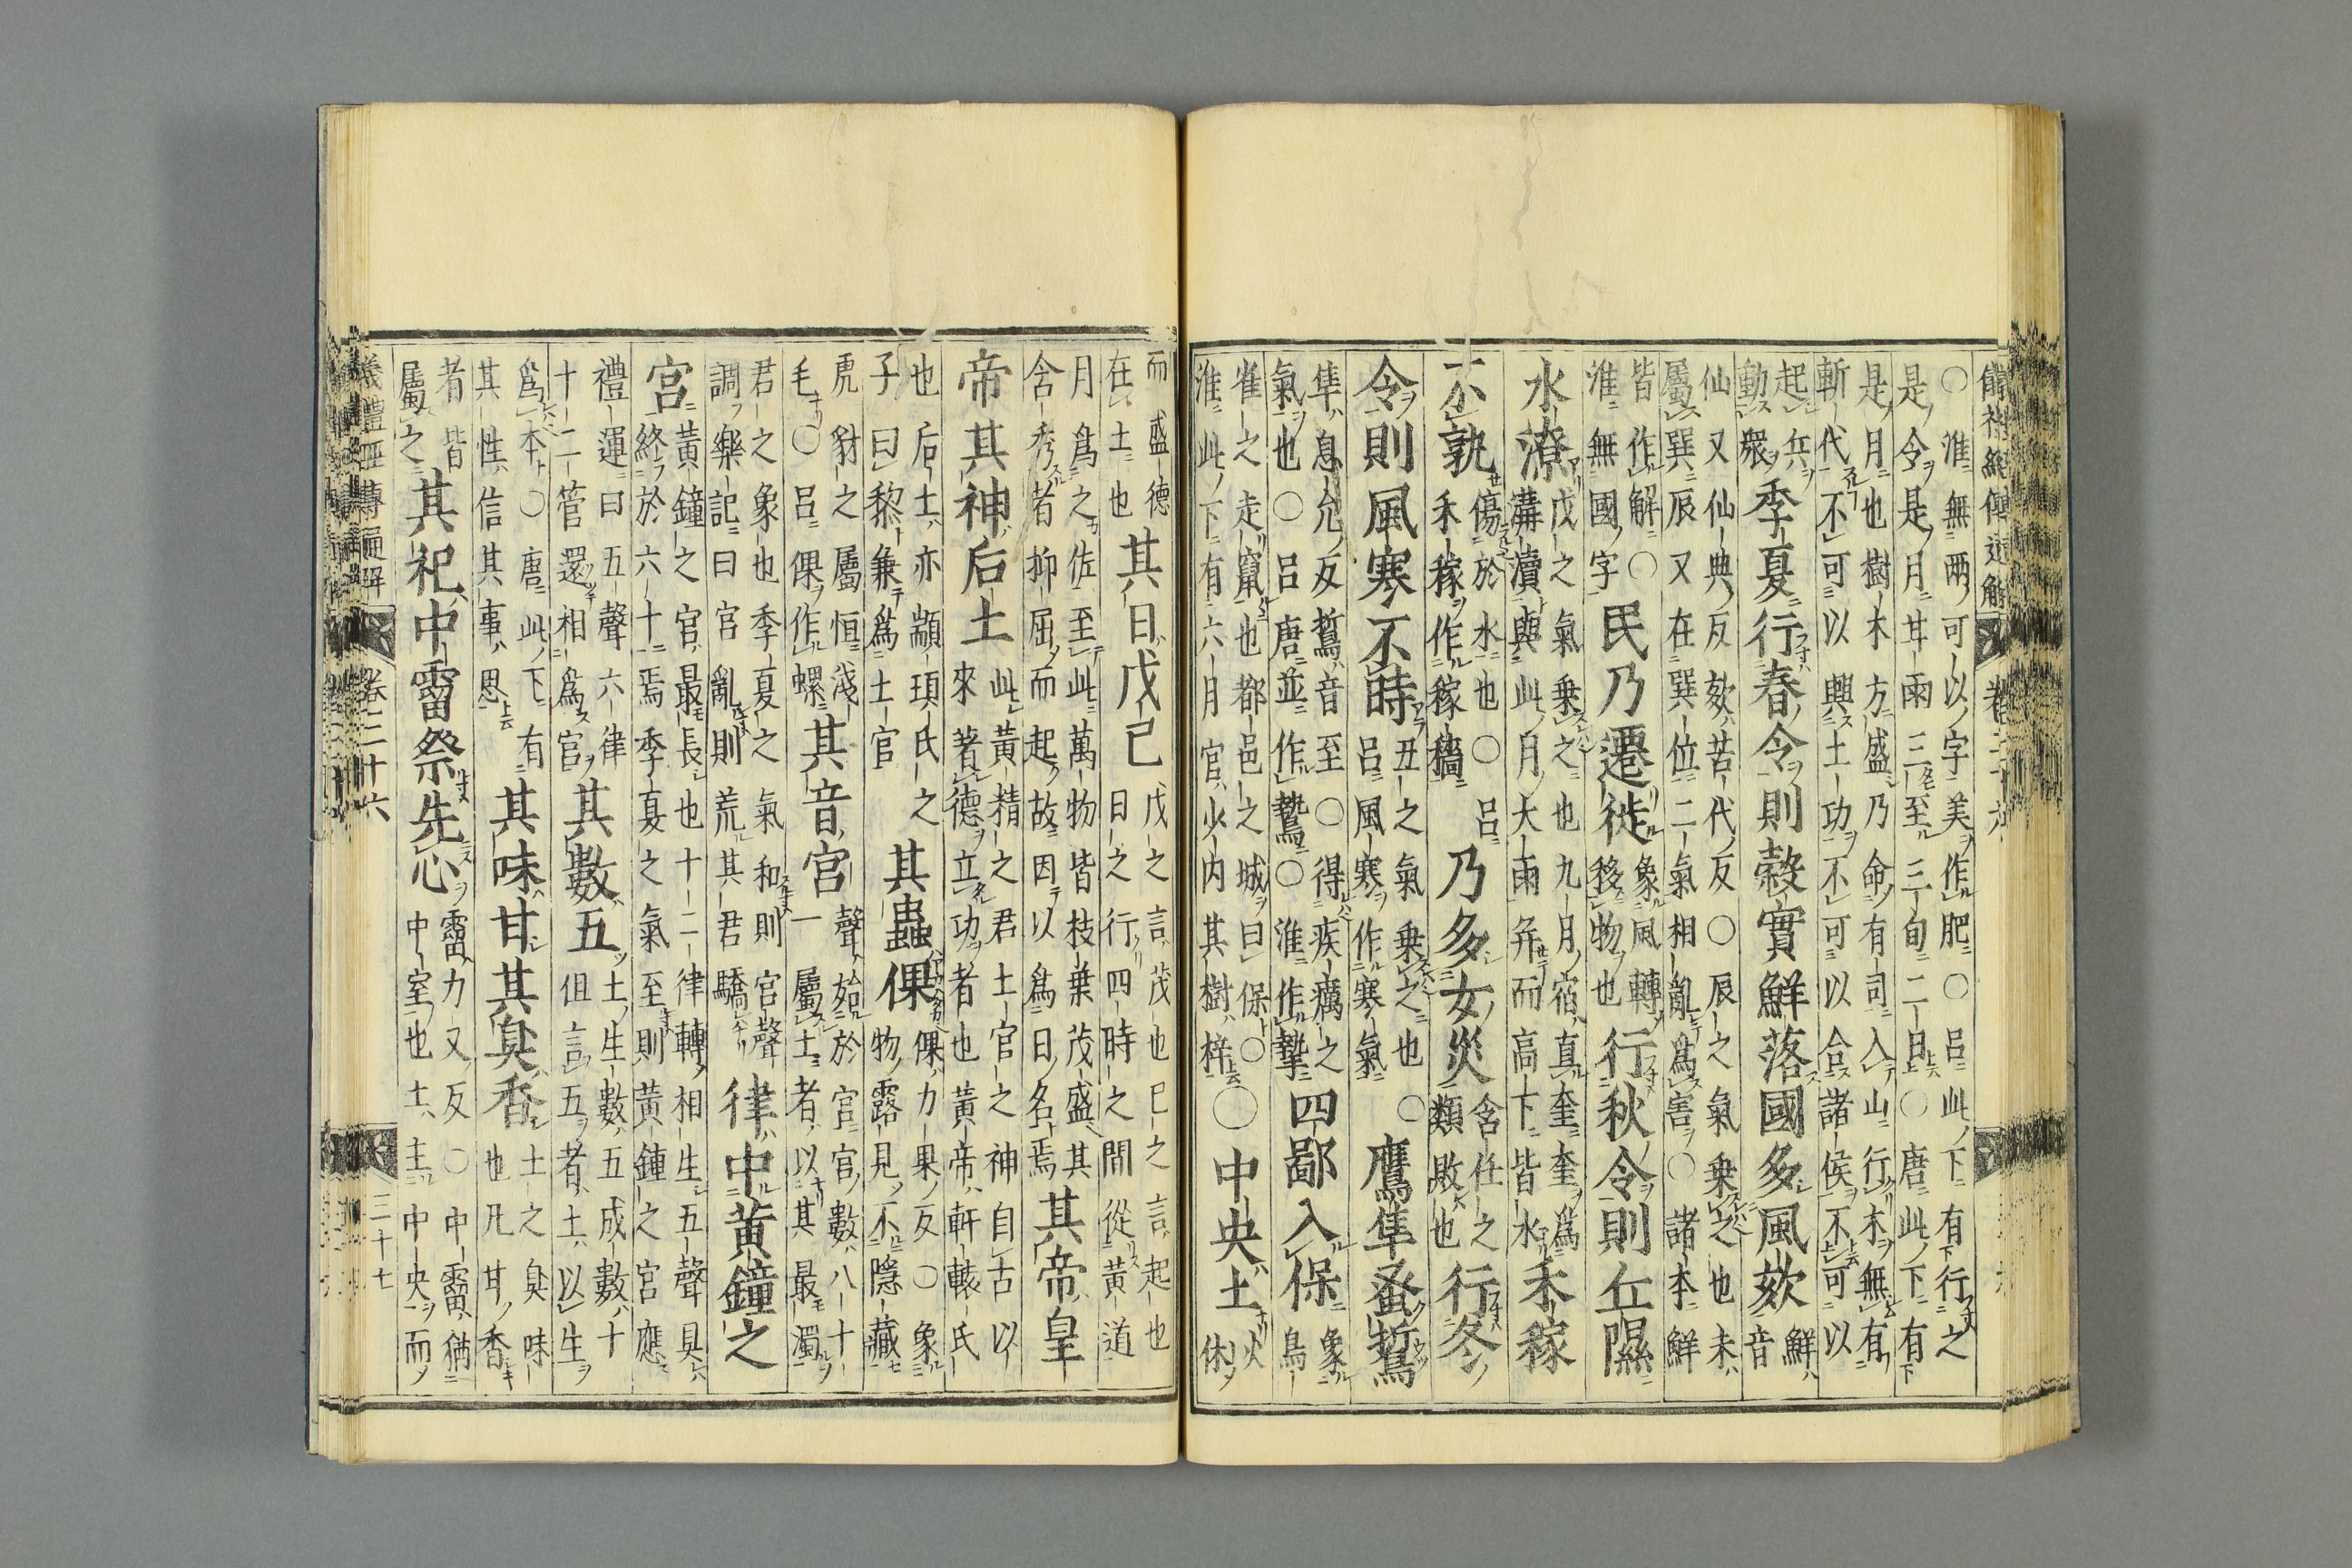 儀禮經傳通解 卷二十六
○淮無兩可以字美作肥○呂此下有行之
是令是月甘雨三至三旬二日○唐此下有
是月也樹木方盛乃命有司入山行木無有
斬代不可以興土功不可以合諸侯不可以
起兵動衆季夏行春令則穀實鮮落國多風欬鮮音
仙又仙典反欬苦代反○辰之氣乗之也未
屬巽辰又在巽位二氣相亂爲害○諸本鮮
皆作解○淮無國字民乃遷徙象風轉移物也行秋令則丘隰
水潦戊之氣乗之也九月宿直奎奎爲溝瀆與此月大雨并而高下皆水禾稼
不孰傷於水也○呂禾稼作稼穡乃多女災含任之類敗也行冬
令則風寒不時丑之氣乗之也○呂風寒作寒氣鷹隼蚤鷙
隼息允反鷙音至○得疾癘之氣也○呂唐並作鷙○淮作摯四鄙入保象鳥
雀之走竄也都邑之城曰保○淮此下有六月官少内其樹梓○中央土火休
而盛德在土也其日戊己戊之言茂也己之言起也日之行四時之間從黃道
月爲之佐至此萬物皆枝葉茂盛其含秀者抑屈而起故因以爲日名焉其帝皇
帝其神后土此黃精之君土官之神自古以來著德立功者也黃帝軒轅氏
也后土亦顓頊氏之子曰黎兼爲土官其蟲倮倮力果反○象物露見不隱藏
虎豸之屬恒淺毛○呂倮作螺其音宮聲始於宮宮數八十一屬土者以其最濁
君之象也季夏之氣和則宮聲調樂記曰宮亂則荒其君驕律中黃鐘之
宮黃鐘之宮最長也十二律轉相生五聲具終於六十焉季夏之氣至則黃鍾之宮應
禮運曰五聲六律十二管還相爲宮其數五土生數五成數十但言五者土以生
爲本○唐此下有其性信其事思其味甘其臭香土之臭味也凡甘香
者皆屬之其祀中霤祭先心霤力又反○中霤猶中室也土主中央而
儀禮經傳通解 卷二十六 三十七